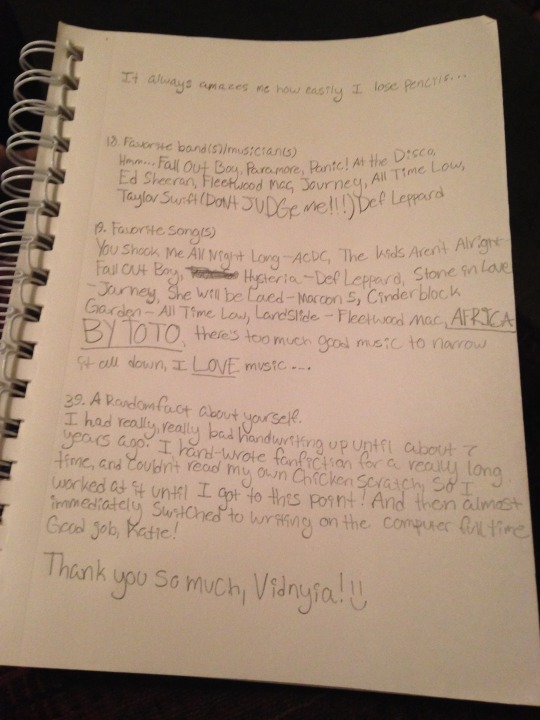 It always amazes me how easily I lose pencils...
18. Favorite band(s)/musician(s)
Hmm... Fall Out Boy, Paramore, Panic! At the Disco,
Ed Sheeran, Fleetwood Mac, Journey, All Time Low,
Taylor Swift (DON'T JUDGE ME!!!) Def Leppard
19. Favorite Song(s)
You Shook Me All Night Long - ACDC, The Kids Aren't Alright -
Fall Out Boy, Hysteria - Def Leppard, Stone in Love
- Journey, She Will be Loved - Maroon 5, Cinderblock
Garden - All Time Low, Landslide - Fleetwood Mac, AFRICA
BY TOTO, there's too much good music to narrow
it all down, I LOVE music...
39. A Random fact about yourself.
I had really, really bad handwriting up until about 2
years ago. I hand-wrote fanfiction for a really long
time, and couldn't read my own chicken scratch, so I
worked at it until I got to this point! And then almost
immediately switched to writing on the computer full time
Good job, Katie!
Thank you so much, Vidnyia! :)